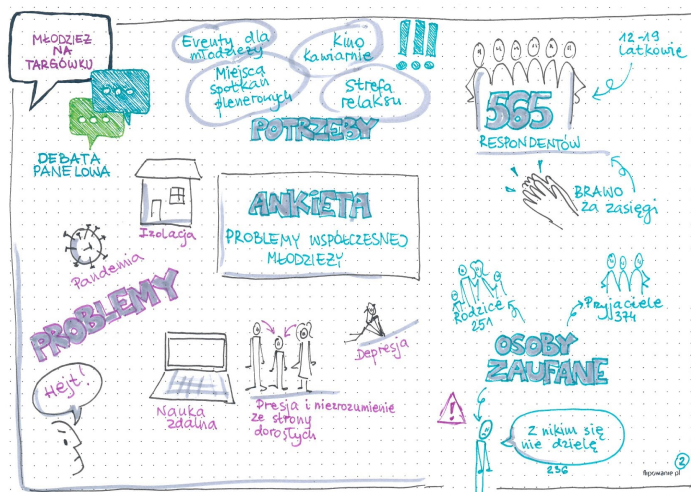 MŁODZIEŻ
NA
TARGÓWKU
DEBATA
PANELOWA
Eventy dla
młodzieży
Kino
kawiarnie
Miejsca
spotkań
plenerowych
Strefa
relaksu
!!!
POTRZEBY
12-19
latkowie
565
RESPONDENTÓW
BRAWO
za zasięgi
Izolacja
ANKIETA
PROBLEMY WSPÓŁCZESNEJ
MŁODZIEŻY
Pandemia
PROBLEMY
Hejt!
Nauka
zdalna
Presja i niezrozumienie
ze strony
dorosłych
Depresja
Rodzice
251
Przyjaciele
374
OSOBY
ZAUFANE
!
Z nikim się
nie dzielę
236
flipowanie.pl
2